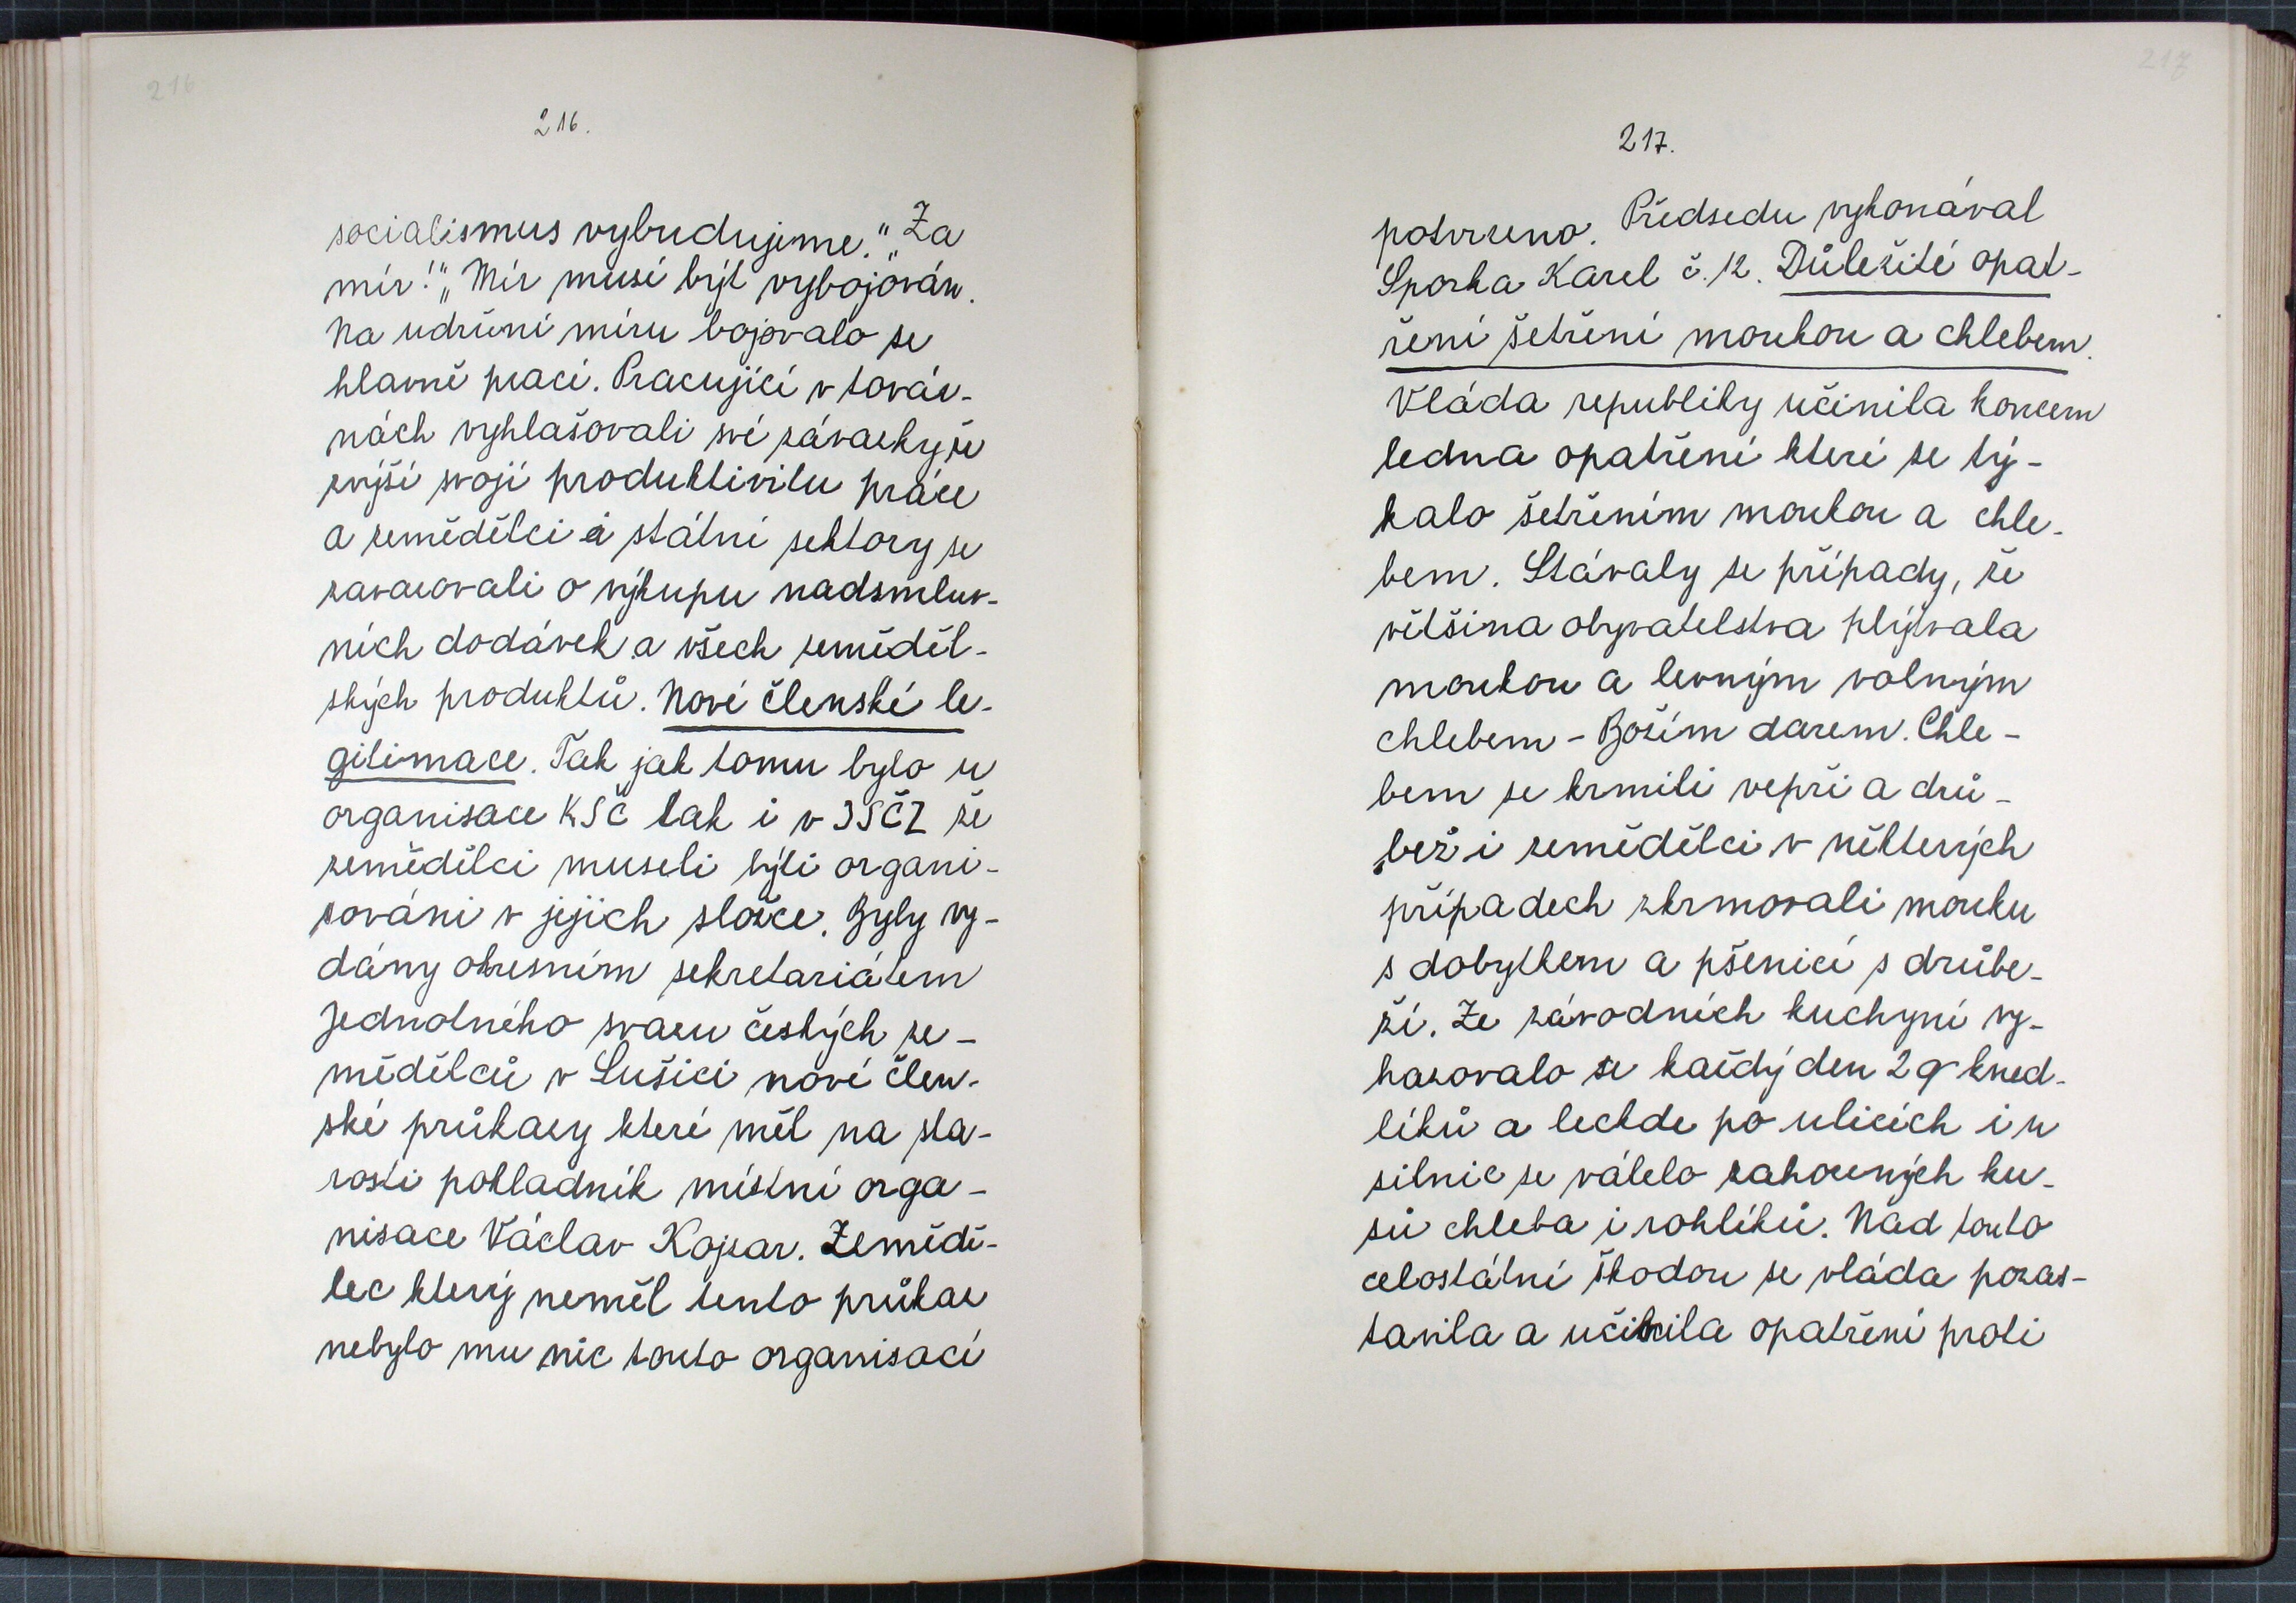 216
216.
socialismus vybudujeme." „Za
mír!" „Mír musí být vybojován.
Na udržení míru bojovalo se
hlavně prací. Pracující v továr-
nách vyhlašovali své závazky že
zvýší svoji produktivitu práce
a zemědělci i státní sektory se
zavazovali o výkupu nadsmluv-
ních dodávek a všech zeměděl-
ských produktů. Nové členské le-
gitimace. Tak jak tomu bylo u
organisace KSČ tak i v JSČZ že
zemědělci museli býti organi-
sováni v jejich složce. Byly vy-
dány okresním sekretariátem
Jednotného svazu českých ze-
mědělců v Sušici nové člen-
ské průkazy které měl na sta-
rosti pokladník místní orga-
nisace Václav Kojzar. Zeměděl-
lec který neměl tento průkaz
nebylo mu nic touto organisací
217
217.
potvrzeno. Předsedu vykonával
Sporka Karel č. 12. Důležité opat-
ření šetření moukou a chlebem.
Vláda republiky učinila koncem
ledna opatření které se tý-
kalo šetřením moukou a chle-
bem. Stávaly se případy, že
většina obyvatelstva plýtvala
moukou a levným volným
chlebem - Božím darem. Chle-
bem se krmili vepři a drů-
bež i zemědělci v některých
případech zkrmovali mouku
s dobytkem a pšenicí s drůbe-
ží. Ze závodních kuchyní vy-
hazovalo se každý den 2 q kned-
líků a leckde po ulicích i u
silnic se válelo zahozených ku-
sů chleba i rohlíků. Nad touto
celostátní škodou se vláda pozas-
tavila a učinila opatření proti